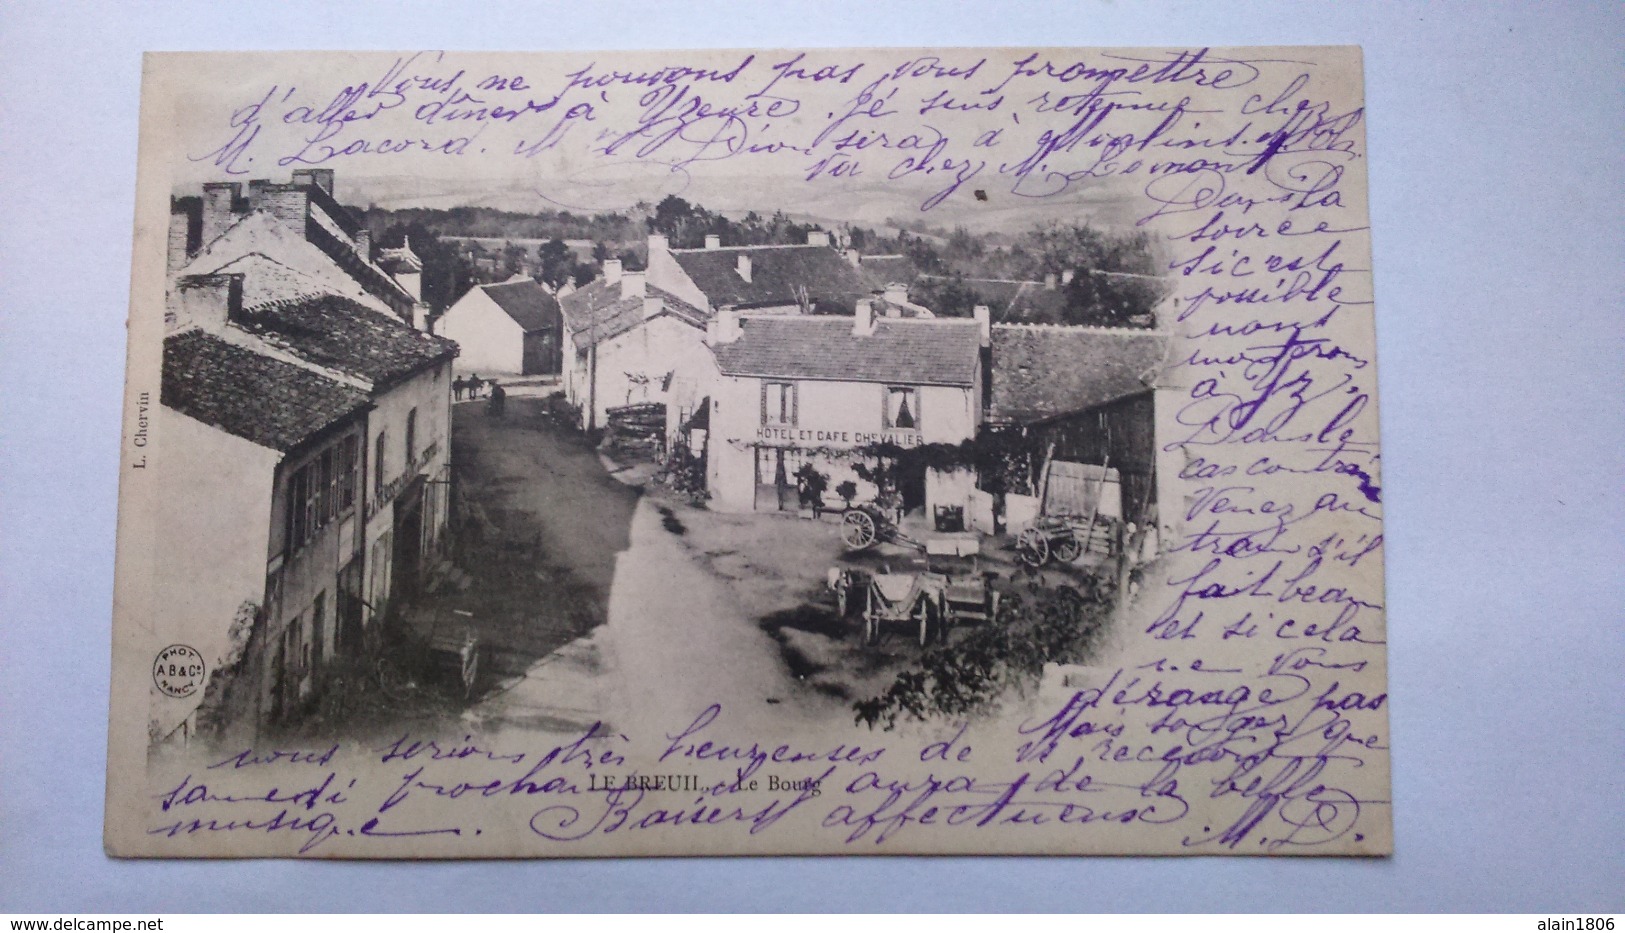 Vous ne pouvons pas vous promettre
d'aller dîner à Yzeure. Jé suis retenue chez
M. Lacord. Dion sera à
Va chez M. Lemont
Dans la
soirée
si c'est
possible
nous
monterons
à Yz,
Dans le
cas contraire
Venez au
train s'il
fait beau
et si cela
ne vous
dérange pas
Mais songez que
nous serions très heureuses de vs recevoir
samedi prochain il y aura de la belle
musique. Baisers affectueux
M. D.
L. Chervin
HÔTEL ET CAFÉ CHEVALIER
PHOT
A B & Cº
NANCY
LE BREUIL. - Le Bourg
alain1806